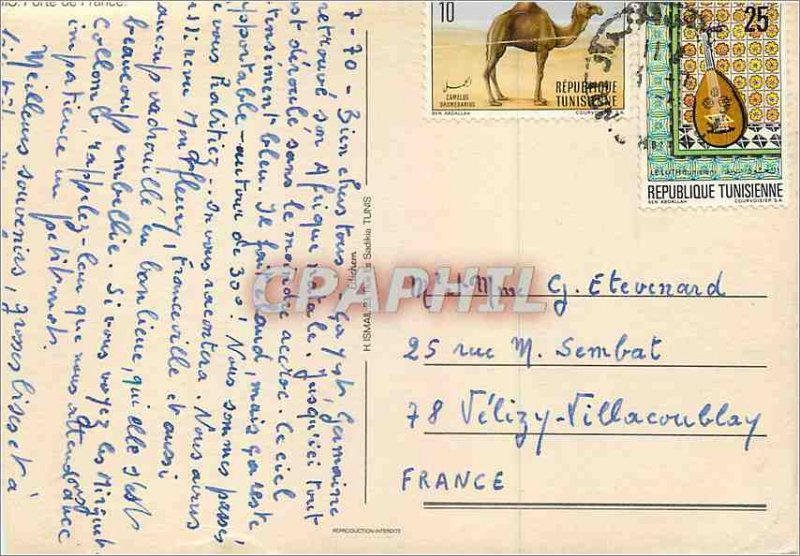 Porte de France
7-70 - Bien chers tous, ça y est, Germaine
retrouvé son Afrique natale. Jusqu'ici tout
est déroulé sans le moindre accroc. Le ciel
intensément bleu. Il fait chaud, mais ça reste
supportable - autour de 30°! Nous sommes passés
On vous racontera. Nous avons
revu Monfleury, Franceville et aussi
vadrouillé en banlieue, qui elle s'est
beaucoup embellie. Si vous voyez les
Collomb, rappelez-leur que nous attendons
impatience un petit mot.
Meilleurs souvenirs, grosses bises et à
bientôt
Etichem
H. ISMAIL Sadikia TUNIS
REPRODUCTION INTERDITE
10
CAMELUS
DROMEDARIUS
الجمل
RÉPUBLIQUE
TUNISIENNE
BEN ABDALLAH
25
REPUBLIQUE TUNISIENNE
BEN ABDALLAH COURVOISIER S.A.
CPAPHIL
M. et Mme G. Etevenard
25 rue M. Sembat
78 Vélizy-Villacoublay
FRANCE